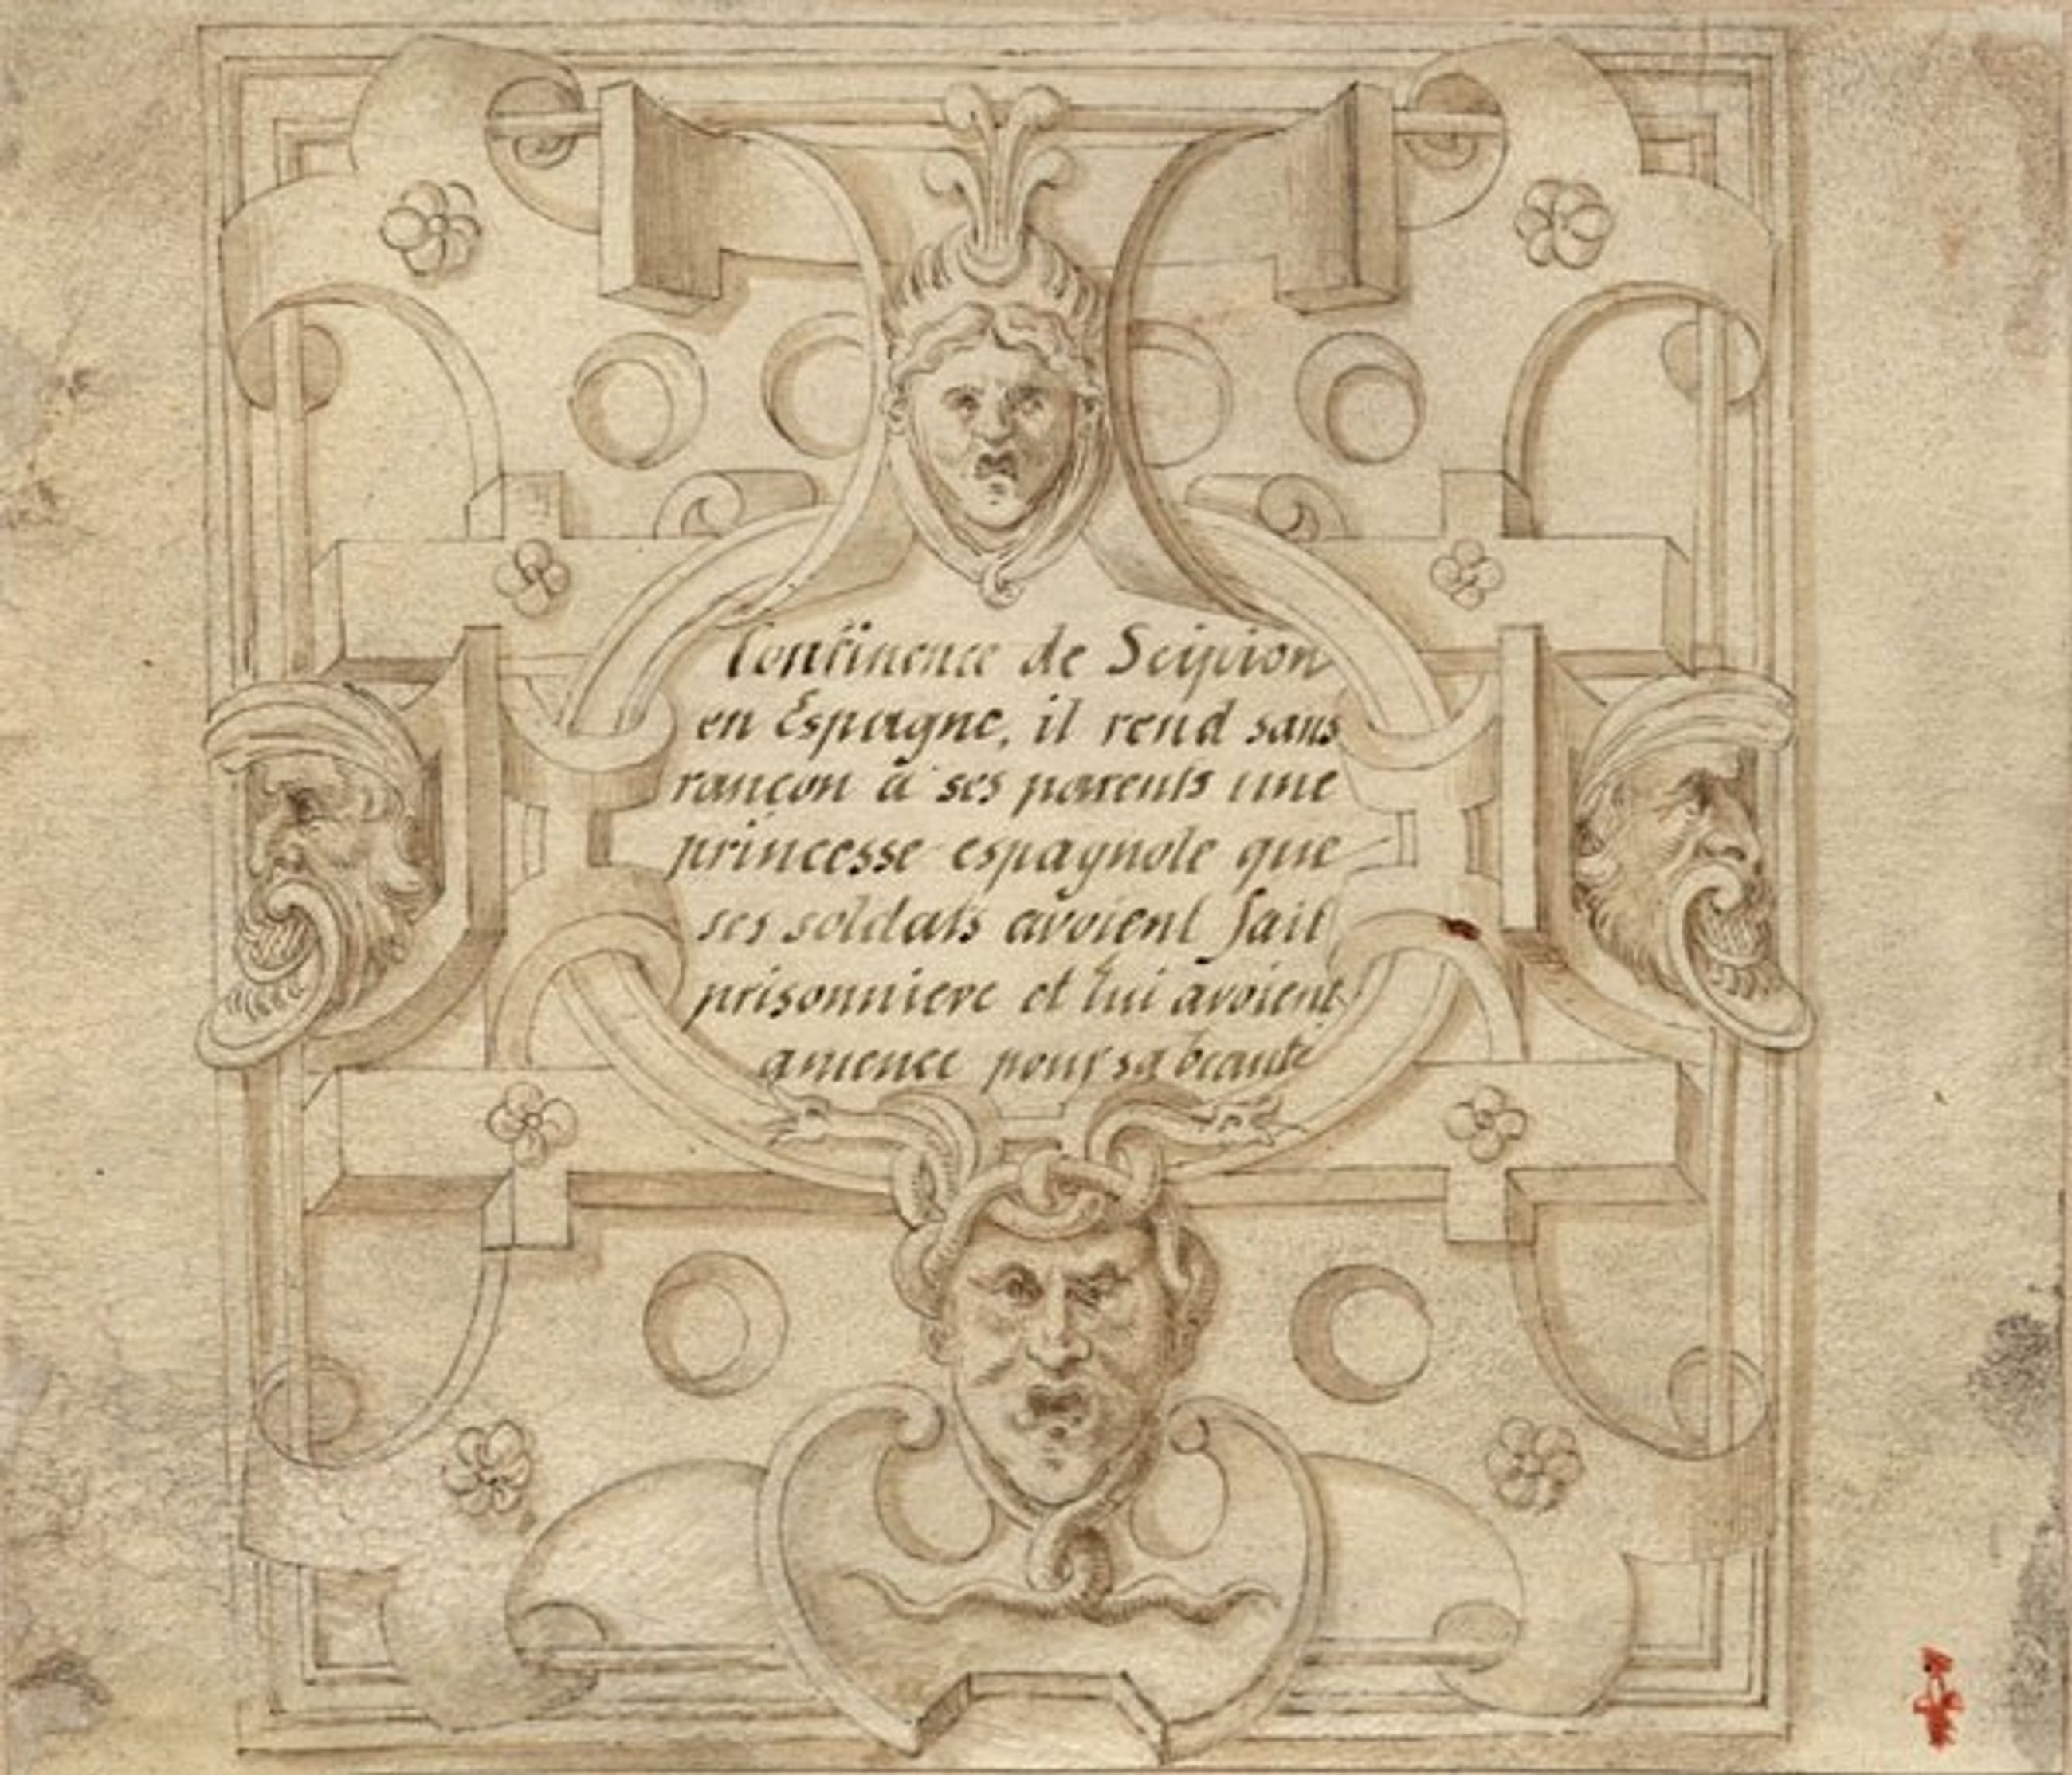 Continence de Scipion
en Espagne, il rend sans
rançon a ses parents une
princesse espagnole que
ses soldats avoient fait
prisonniere et lui avoient
amenee pour sa beauté